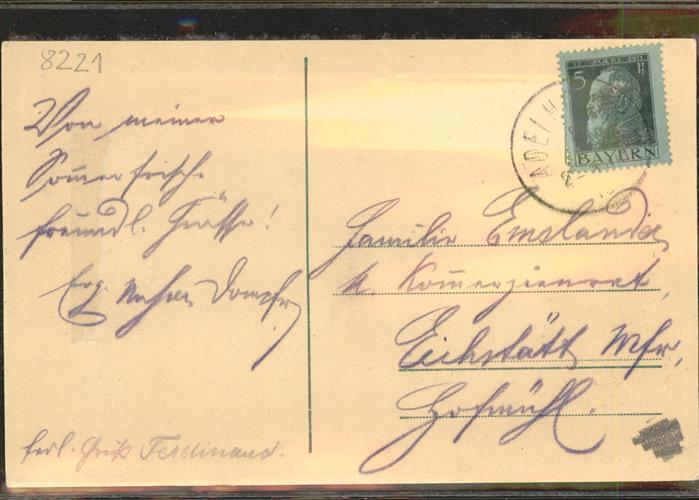 8221
Von meiner
Sommerfrische
freundl. Grüße!
Erg.
12. MÄRZ 1911
5 Pf
BAYERN
ADELH
Familie Emslander
k. Kommerzienrat,
Eichstätt Mfr,
Hofmühl.
herl. Gruß Ferdinand.